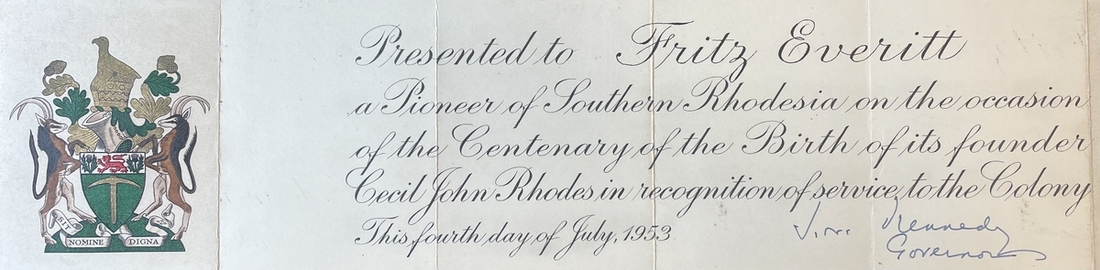 Presented to Fritz Everitt
a Pioneer of Southern Rhodesia on the occasion
of the Centenary of the Birth of its founder
Cecil John Rhodes in recognition of service to the Colony
This fourth day of July, 1953
Kennedy
Governor
SIT
NOMINE DIGNA